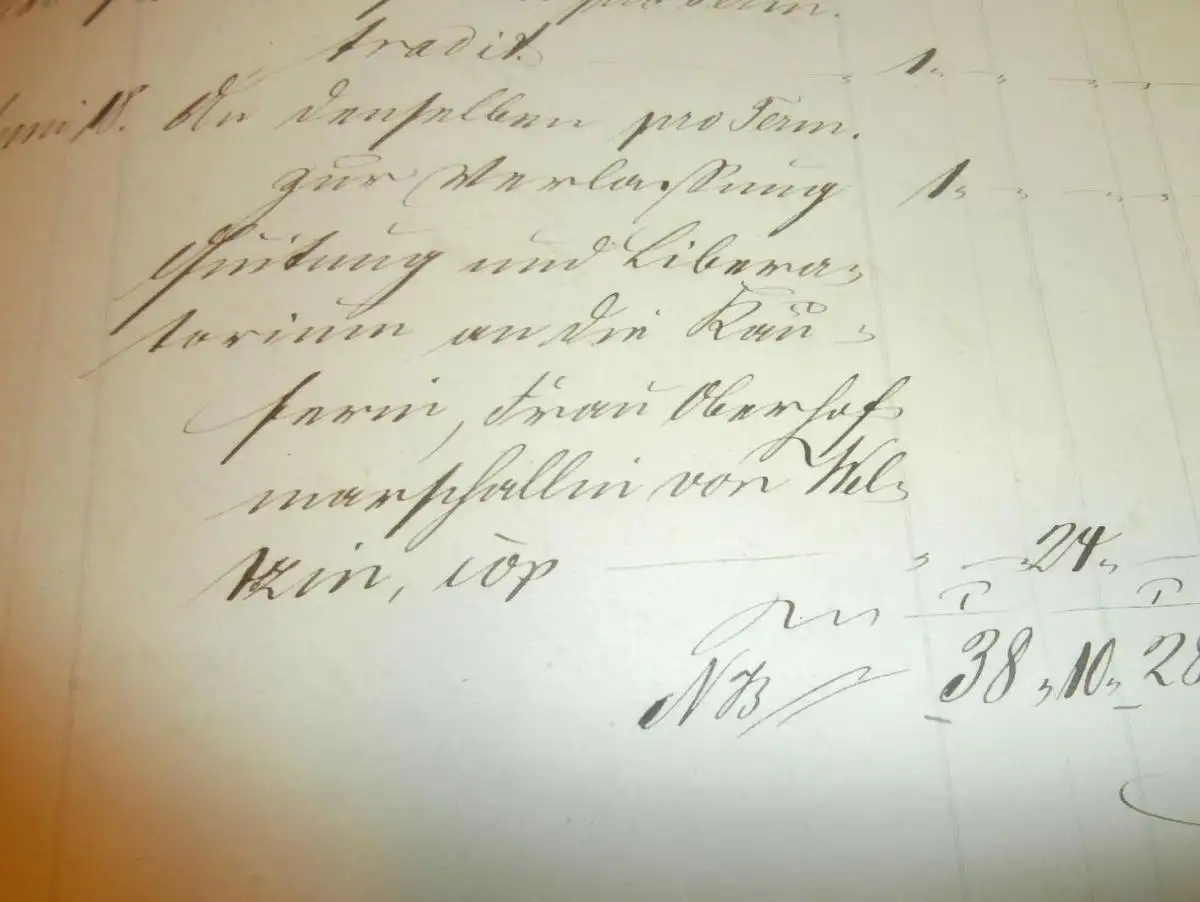 tradit. 1 " " " "
18. An denselben pro Term.
zur Verlassung 1 " " " "
Quitung und Libera-
torium an die Käu-
ferin, Frau Oberhof
marschallin von Wel-
tzin, cop " " 24 "
NB 38 " 10 " 28